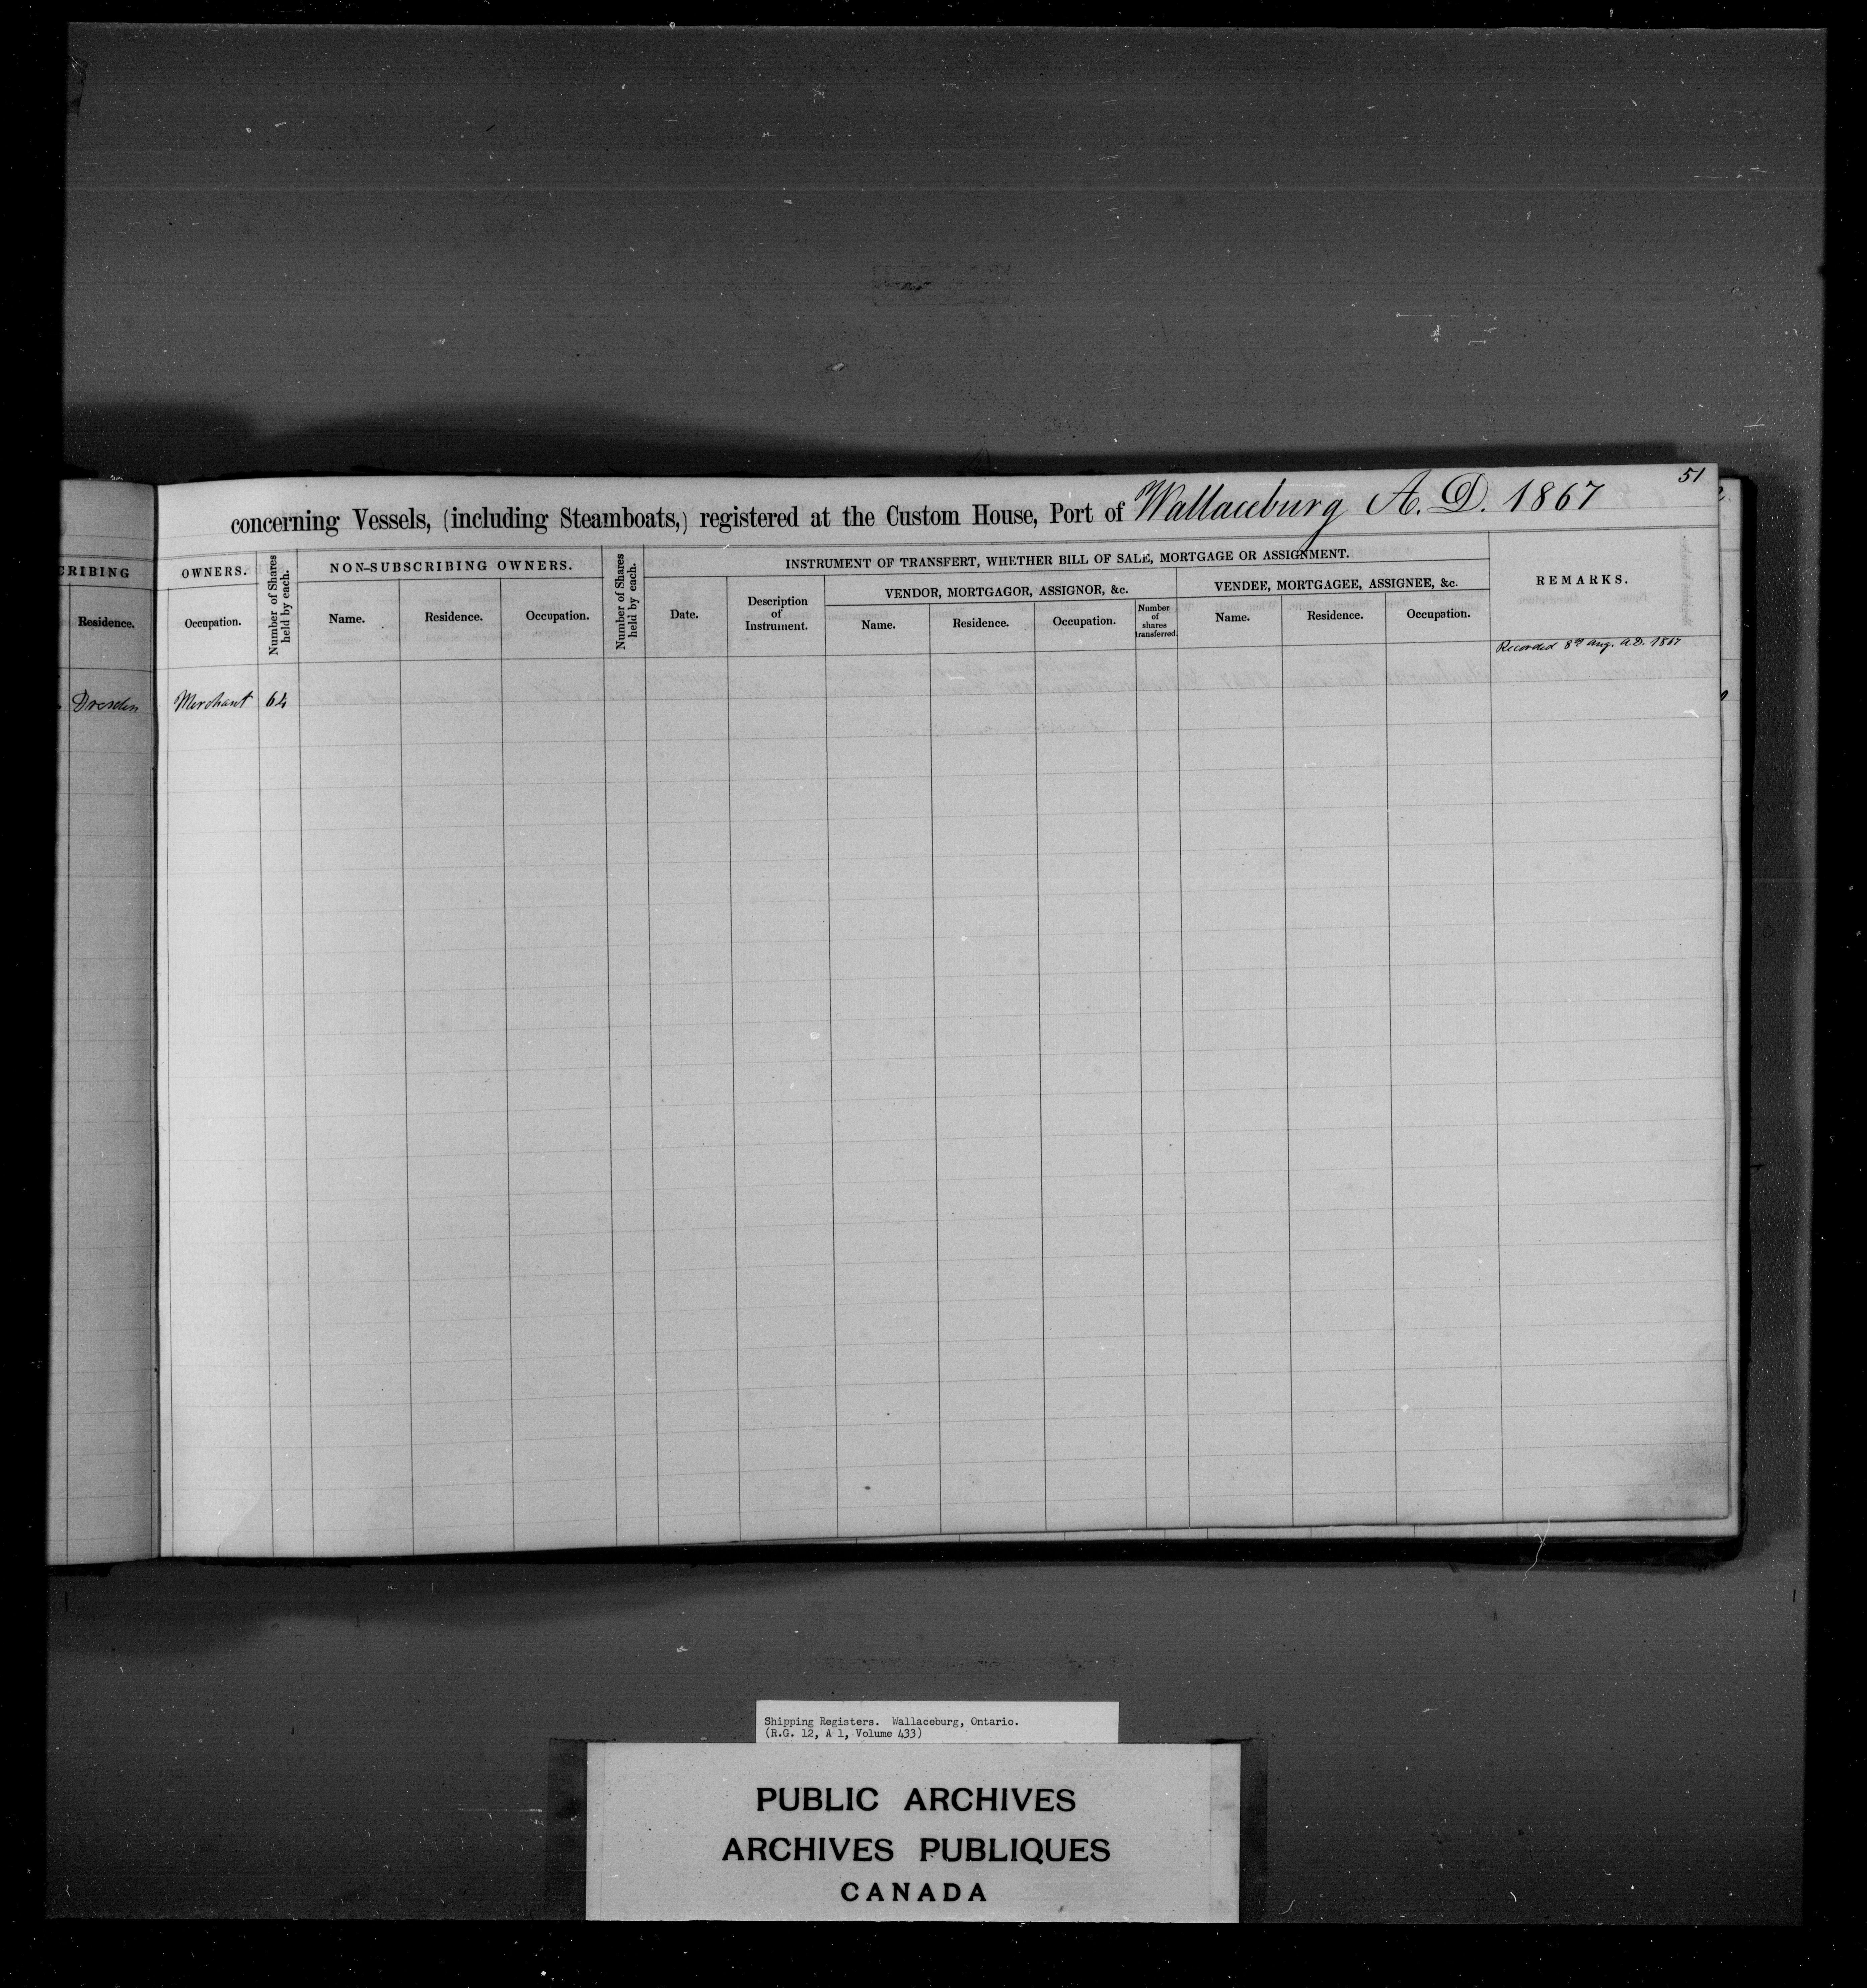 51
concerning Vessels, (including Steamboats,) registered at the Custom House, Port of Wallaceburg A. D. 1867
CRIBING
OWNERS.
Number of Shares held by each.
NON-SUBSCRIBING OWNERS.
Number of Shares held by each.
INSTRUMENT OF TRANSFERT, WHETHER BILL OF SALE, MORTGAGE OR ASSIGNMENT.
REMARKS.
VENDOR, MORTGAGOR, ASSIGNOR, &c.
VENDEE, MORTGAGEE, ASSIGNEE, &c.
Residence.
Occupation.
Name.
Residence.
Occupation.
Date.
Description
of
Instrument.
Name.
Residence.
Occupation.
Number
of
shares
transferred.
Name.
Residence.
Occupation.
Recorded 8th Aug. A.D. 1867
Dresden Merchant 64
Shipping Registers. Wallaceburg, Ontario.
(R.G. 12, A 1, Volume 433)
PUBLIC ARCHIVES
ARCHIVES PUBLIQUES
CANADA